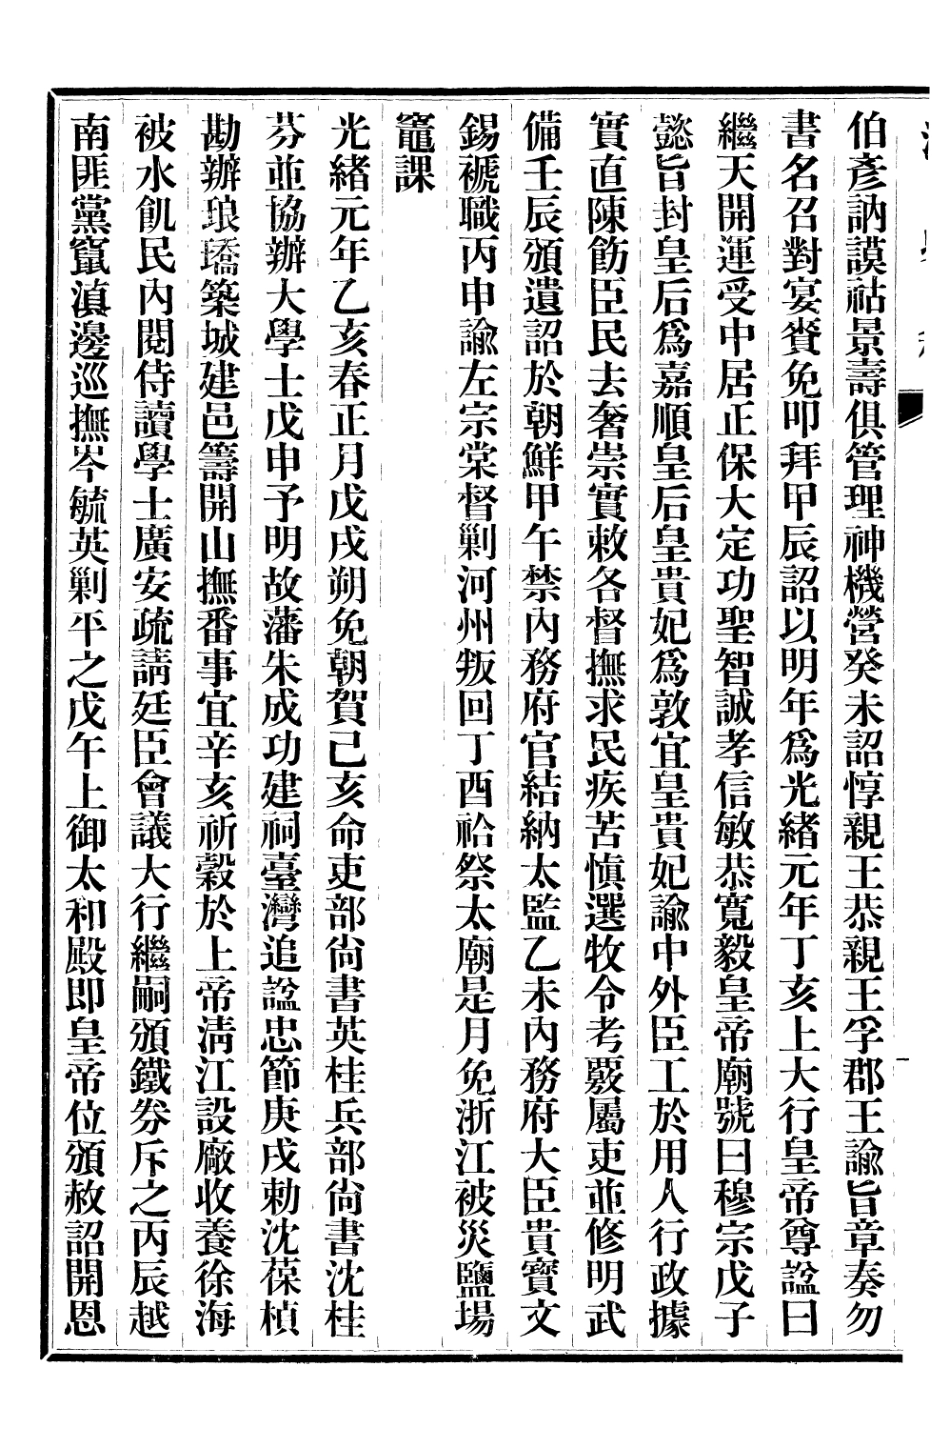 伯彥訥謨祜景壽俱管理神機營癸未詔惇親王恭親王孚郡王諭旨章奏勿
書名召對宴賚免叩拜甲辰詔以明年爲光緒元年丁亥上大行皇帝尊諡曰
繼天開運受中居正保大定功聖智誠孝信敏恭寬毅皇帝廟號曰穆宗戊子
懿旨封皇后爲嘉順皇后皇貴妃爲敦宜皇貴妃諭中外臣工於用人行政據
實直陳飭臣民去奢崇實敕各督撫求民疾苦愼選牧令考覈屬吏並修明武
備壬辰頒遺詔於朝鮮甲午禁內務府官結納太監乙未內務府大臣貴寶文
錫褫職丙申諭左宗棠督剿河州叛回丁酉祫祭太廟是月免浙江被災鹽場
竈課
光緒元年乙亥春正月戊戌朔免朝賀己亥命吏部尙書英桂兵部尙書沈桂
芬並協辦大學士戊申予明故藩朱成功建祠臺灣追諡忠節庚戌勅沈葆楨
勘辦琅𤩝築城建邑籌開山撫番事宜辛亥祈穀於上帝淸江設廠收養徐海
被水飢民內閣侍讀學士廣安疏請廷臣會議大行繼嗣頒鐵券斥之丙辰越
南匪黨竄滇邊巡撫岑毓英剿平之戊午上御太和殿即皇帝位頒赦詔開恩